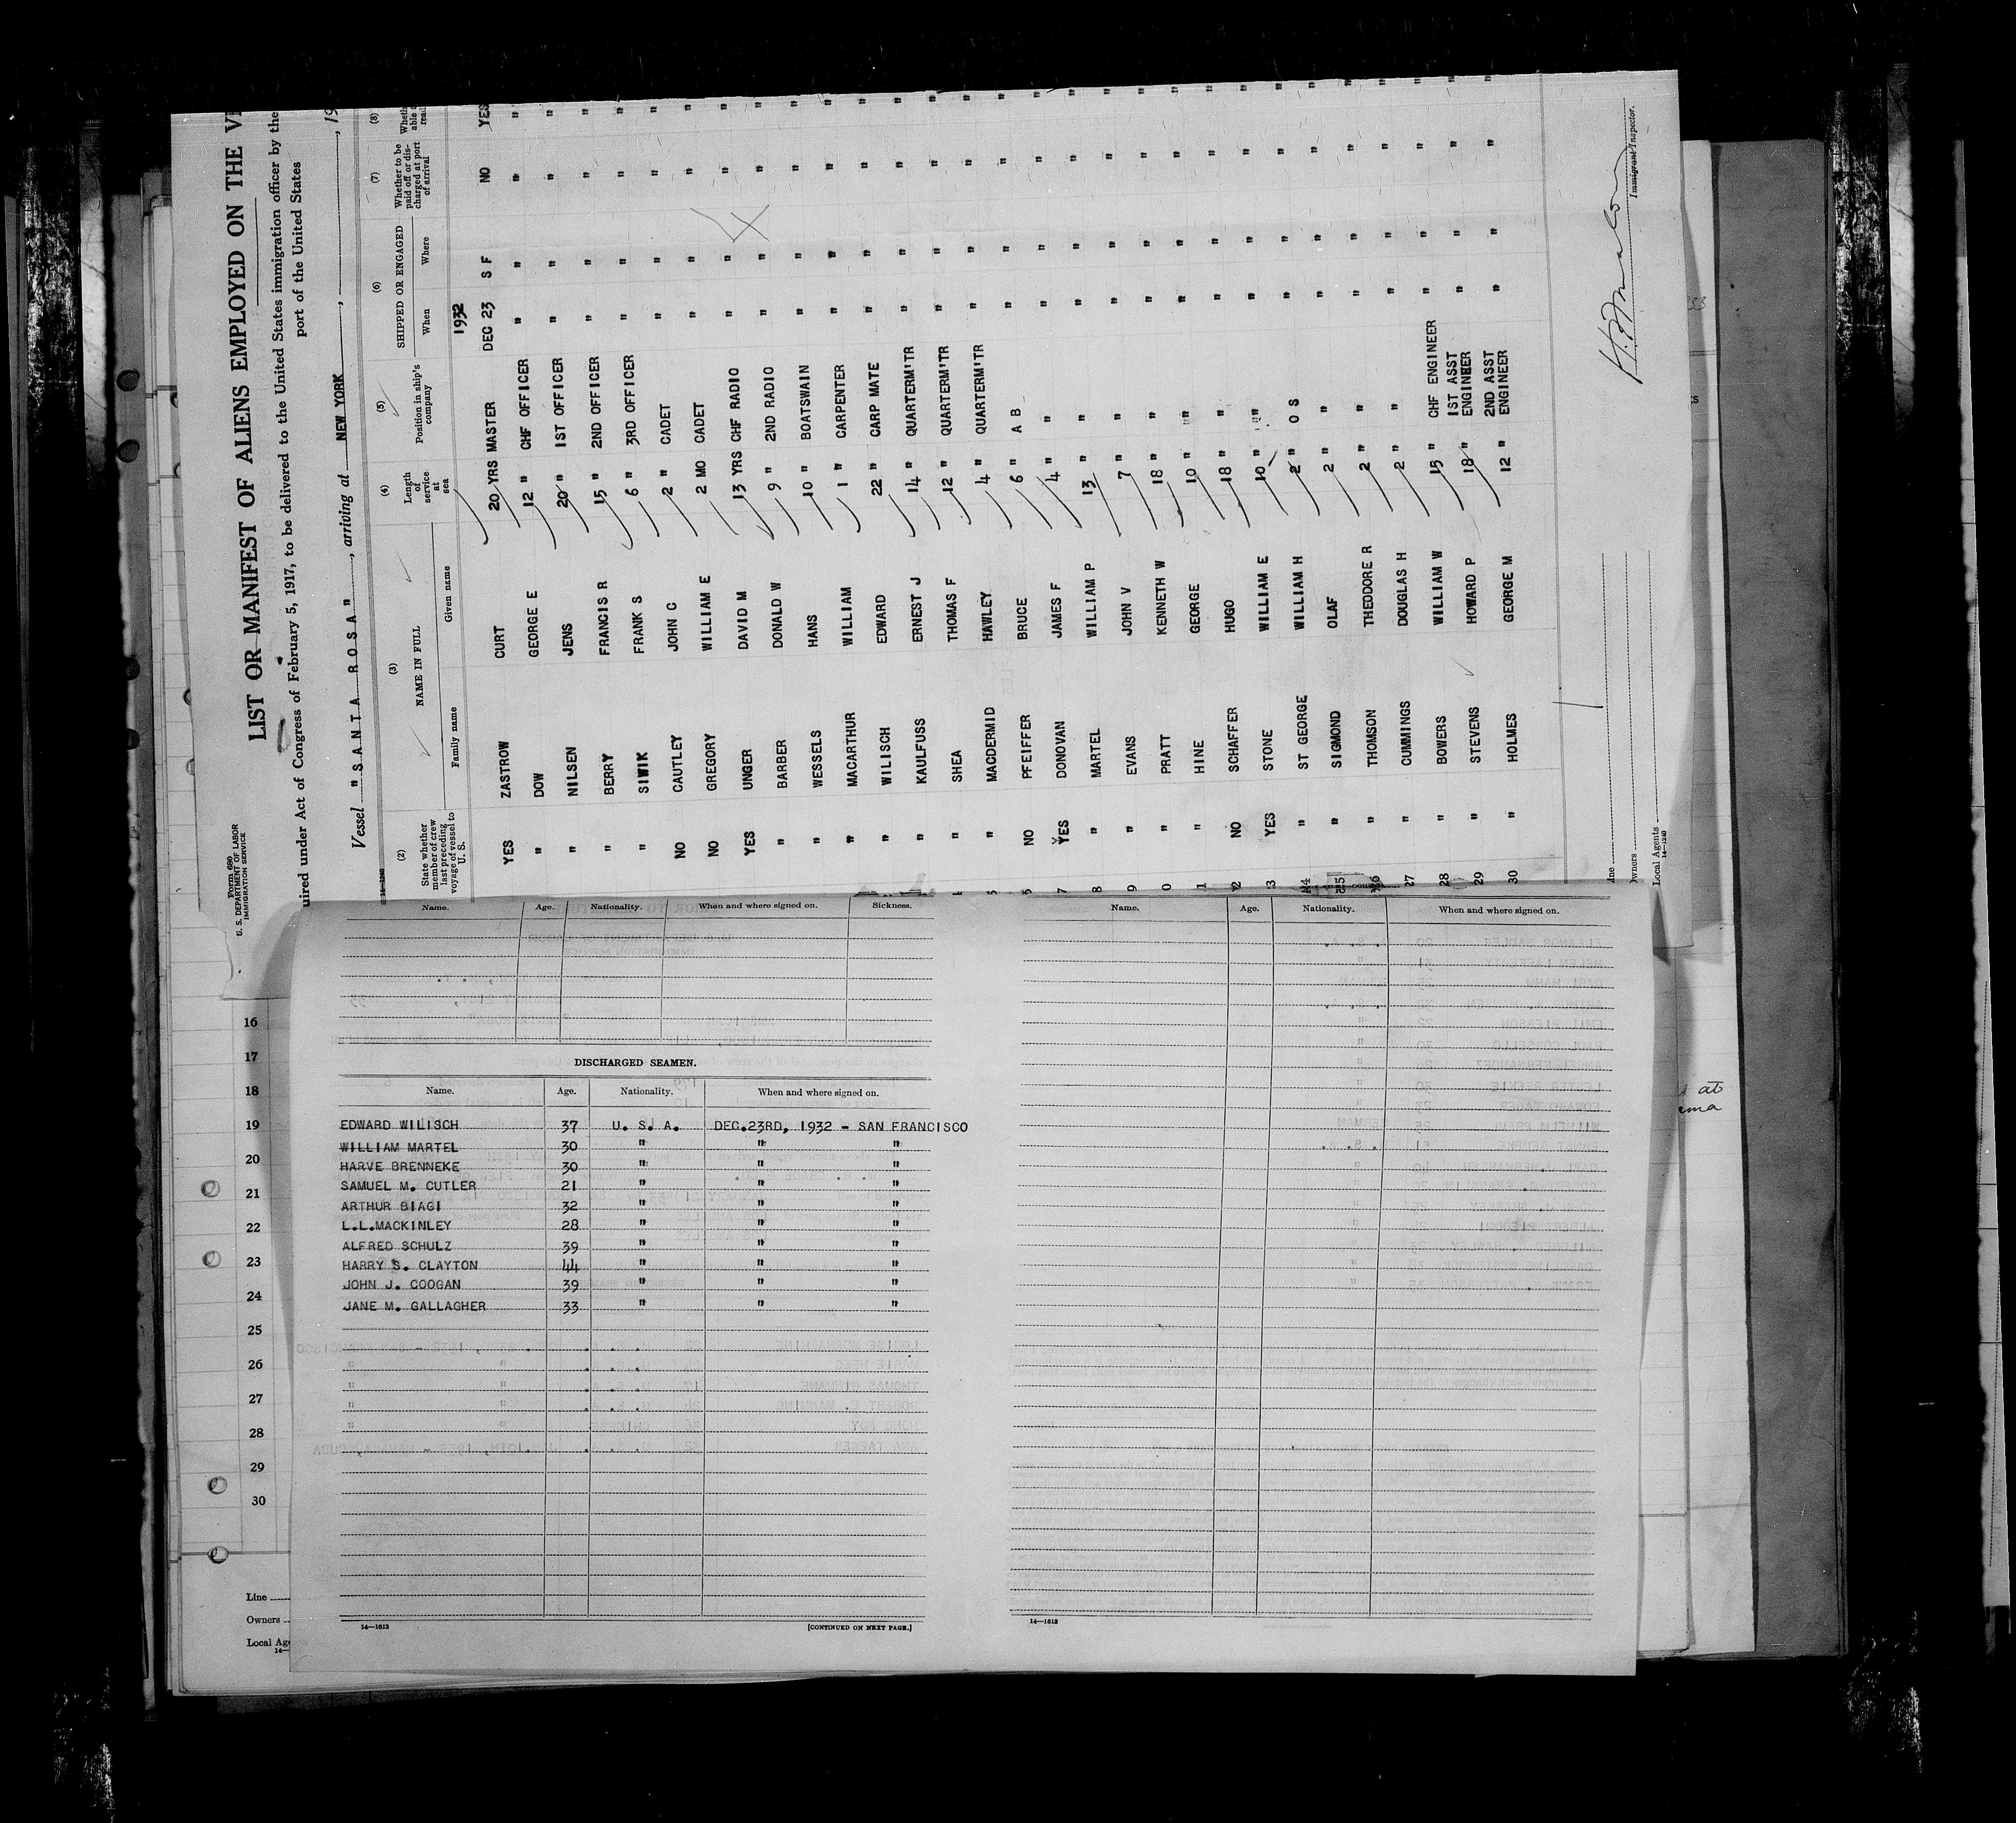 Form 680
U. S. DEPARTMENT OF LABOR
IMMIGRATION SERVICE
LIST OR MANIFEST OF ALIENS EMPLOYED ON THE
uired under Act of Congress of February 5, 1917, to be delivered to the United States immigration officer by the
port of the United States
Vessel "SANTA ROSA", arriving at NEW YORK, , 19
14-1240
(2) (3) (4) (5) (6) (7) (8)
State whether member of crew last preceding voyage of vessel to U. S. NAME IN FULL Length of service at sea Position in ship's company SHIPPED OR ENGAGED Whether to be paid off or discharged at port of arrival
Family name Given name When Where
1932
YES ZASTROW CURT 20 YRS MASTER DEC 23 S F NO YES
" DOW GEORGE E 12 " CHF OFFICER " " " "
" NILSEN JENS 20 " 1ST OFFICER " " " "
" BERRY FRANCIS R 15 " 2ND OFFICER " " " "
" SIWIK FRANK S 6 " 3RD OFFICER " " " "
NO CAUTLEY JOHN C 2 " CADET " " " "
NO GREGORY WILLIAM E 2 MO CADET " " " "
YES UNGER DAVID M 13 YRS CHF RADIO " " " "
" BARBER DONALD W 9 " 2ND RADIO " " " "
" WESSELS HANS 10 " BOATSWAIN " " " "
" MACARTHUR WILLIAM 1 " CARPENTER " " " "
" WILISCH EDWARD 22 " CARP MATE " " " "
" KAULFUSS ERNEST J 14 " QUARTERM'TR " " " "
" SHEA THOMAS F 12 " QUARTERM'TR " " " "
" MACDERMID HAWLEY 4 " QUARTERM'TR " " " "
NO PFEIFFER BRUCE 6 " A B " " " "
7 YES DONOVAN JAMES F 4 " " " " " "
8 " MARTEL WILLIAM P 13 " " " " " "
9 " EVANS JOHN V 7 " " " " " "
0 " PRATT KENNETH W 18 " " " " " "
1 " HINE GEORGE 10 " " " " " "
2 NO SCHAFFER HUGO 18 " " " " " "
3 YES STONE WILLIAM E 10 " " " " " "
24 " ST GEORGE WILLIAM H 2 " O S " " " "
25 " SIGMOND OLAF 2 " " " " " "
26 " THOMSON THEODORE R 2 " " " " " "
27 " CUMMINGS DOUGLAS H 2 " " " " " "
28 " BOWERS WILLIAM W 15 " CHF ENGINEER " " " "
29 " STEVENS HOWARD P 18 " 1ST ASST ENGINEER " " " "
30 " HOLMES GEORGE M 12 " 2ND ASST ENGINEER " " " "
Immigrant Inspector.
Owners
Local Agents
14-1240
Name. Age. Nationality. When and where signed on. Sickness.
DISCHARGED SEAMEN.
Name. Age. Nationality. When and where signed on.
EDWARD WILISCH 37 U. S. A. DEC.23RD, 1932 - SAN FRANCISCO
WILLIAM MARTEL 30 " " "
HARVE BRENNEKE 30 " " "
SAMUEL M. CUTLER 21 " " "
ARTHUR BIAGI 32 " " "
L.L.MACKINLEY 28 " " "
ALFRED SCHULZ 39 " " "
HARRY S. CLAYTON 44 " " "
JOHN J. COOGAN 39 " " "
JANE M. GALLAGHER 33 " " "
14—1613 [CONTINUED ON NEXT PAGE.]
Name. Age. Nationality. When and where signed on.
14—1613
16
17
18
19
20
21
22
23
24
25
26
27
28
29
30
Line
Owners
Local Age
14—
at